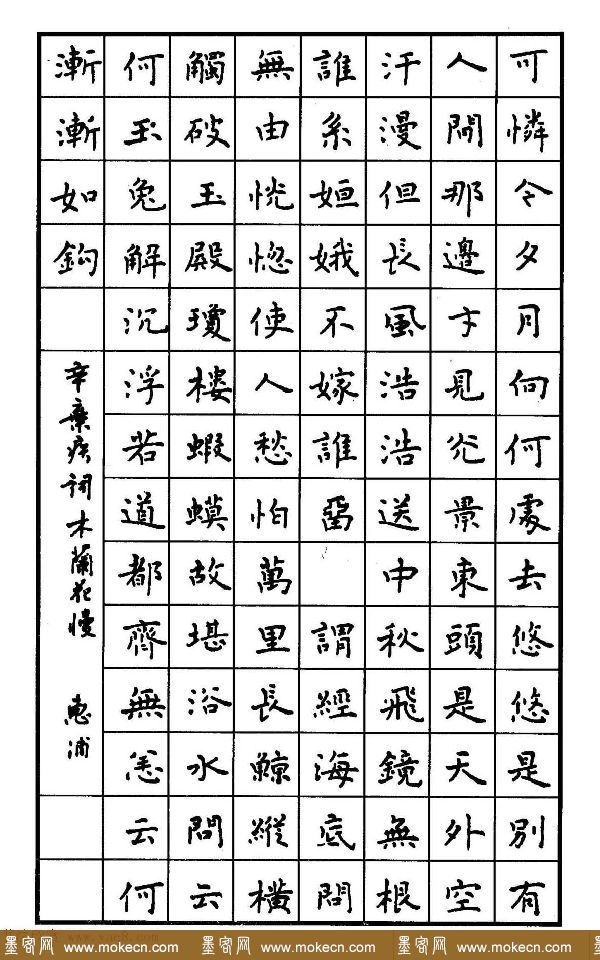 可憐今夕月向何處去悠悠是別有
人間那邊才見光景東頭是天外空
汗漫但長風浩浩送中秋飛鏡無根
誰系姮娥不嫁誰留 謂經海底問
無由恍惚使人愁怕萬里長鯨縱橫
觸破玉殿瓊樓蝦蟆故堪浴水問云
何玉兔解沉浮若道都齊無恙云何
漸漸如鉤
辛棄疾詞木蘭花慢 惠浦
墨客网 www.mokecn.com 墨客网 www.mokecn.com 墨客网 www.mokecn.com